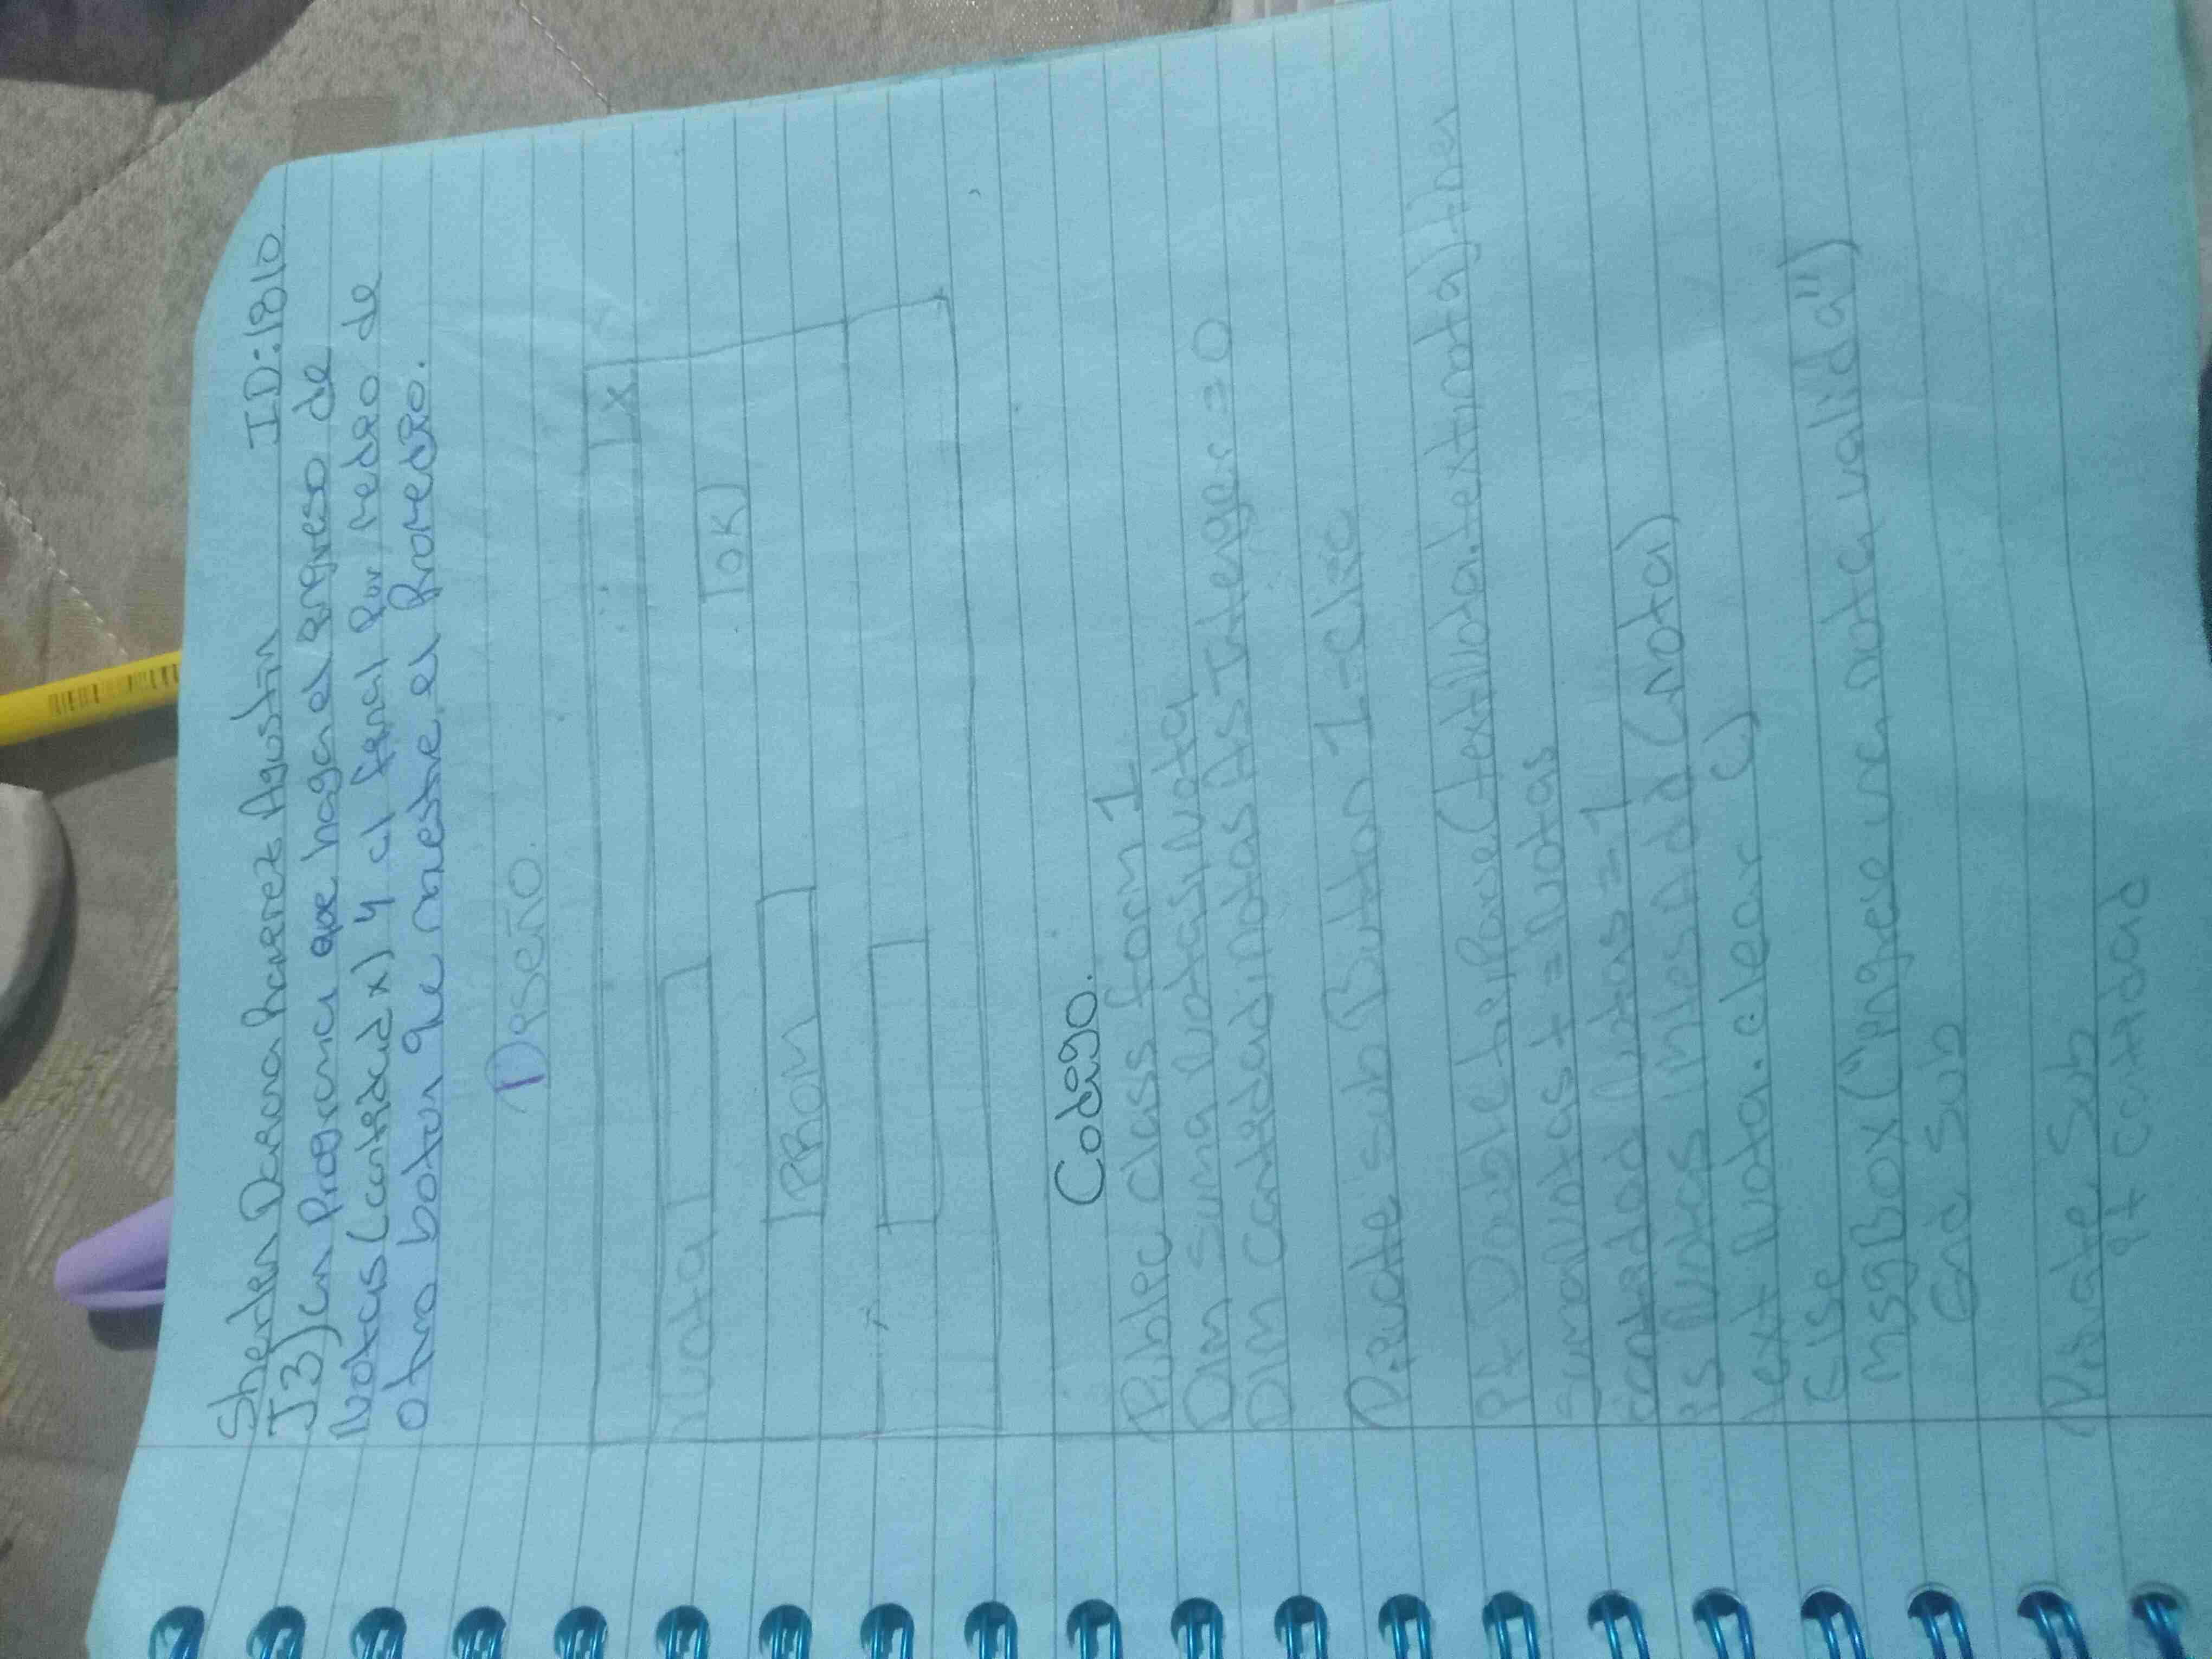 Sherlen Dariana Ramirez Agustin ID:1810
J3) un Programa que haga el ingreso de
Notas (cantidad x) y al final por medio de
otro boton que muestre el Promedio.
Diseño.
X
Nota OK
PROM
Codigo.
Public class form 1
Dim suma Notas, Nota
Dim cantidad, notas As Interger = 0
Private sub Button 1-clic
if Double
sumaNotas + = Notas
cantidad Notas = 1
Add (nota)
text Nota.clear ()
Else
MsgBox ("ingrese una nota valida")
End Sub
Private Sub
if cantidad